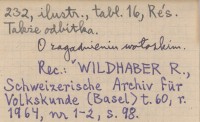 232, ilustr., tabl. 16, Rés.
Także odbitka.
O zagadnieniu wołoskim.
Rec.: "WILDHABER R.,
Schweizerische Archiv für
Volkskunde (Basel) t. 60, r.
1964, nr 1-2, s. 98.